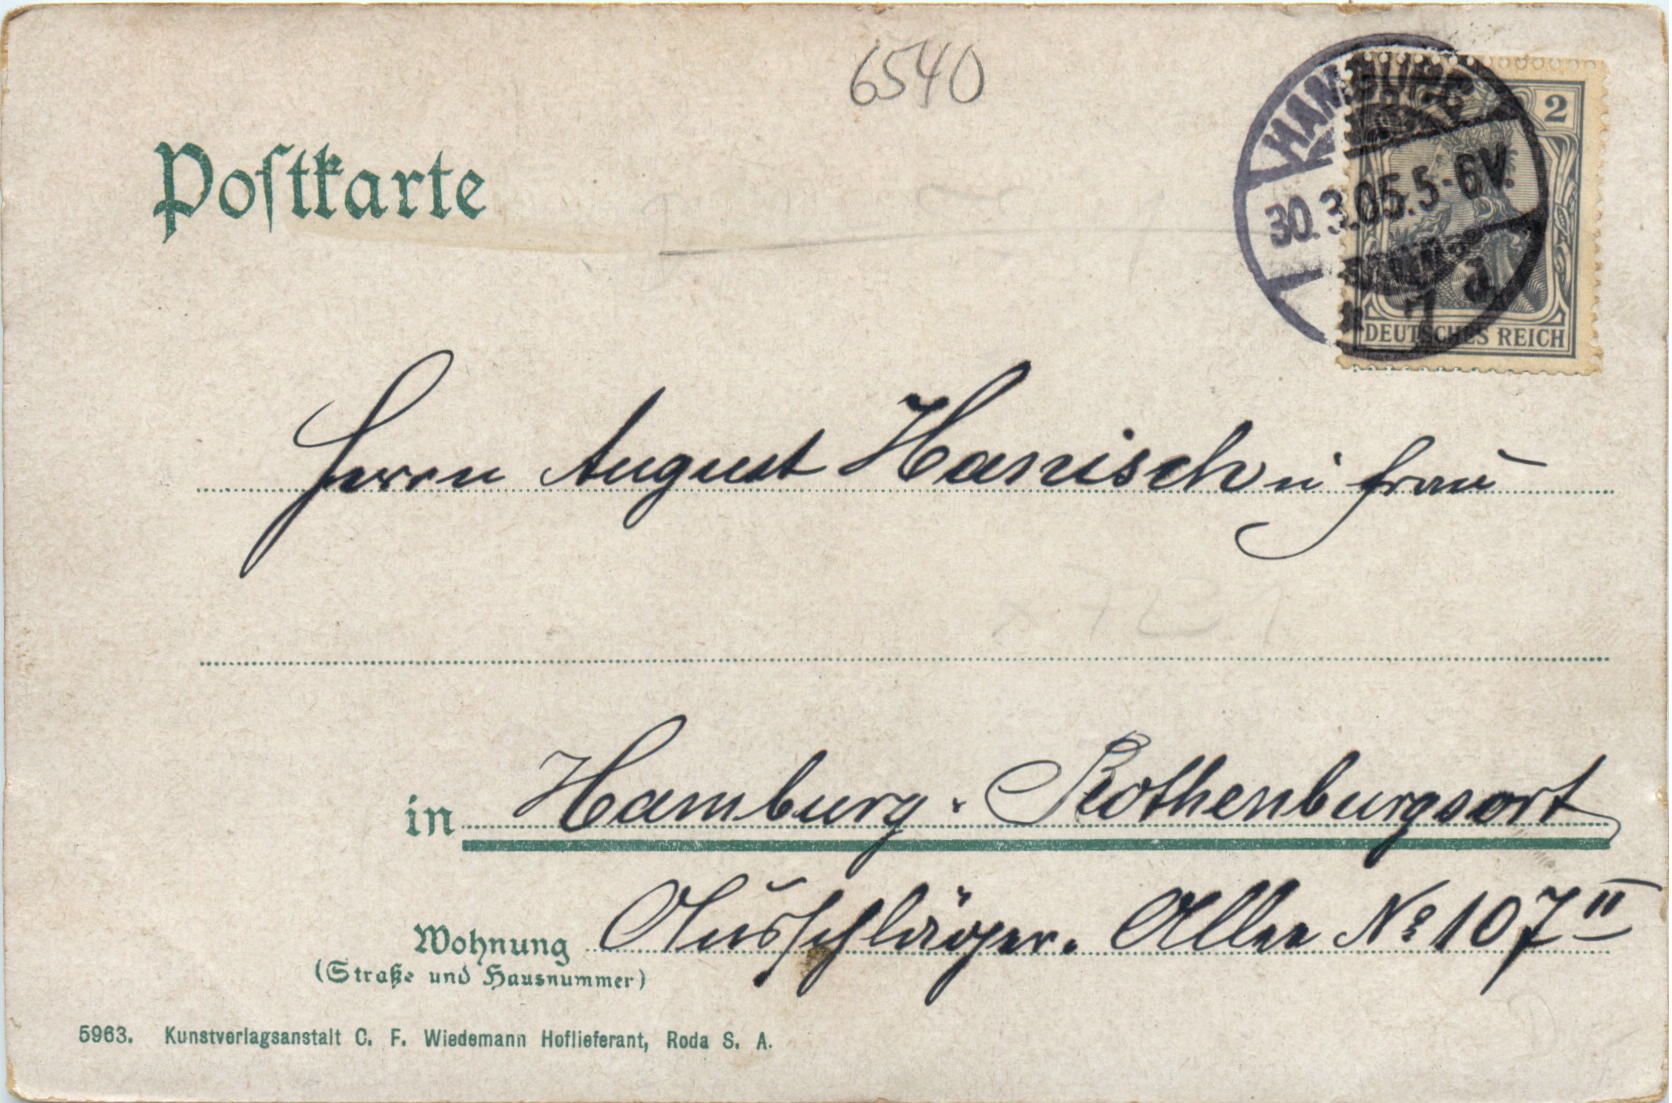 6540
Postkarte
HAMBURG
30.3.05.5-6V.
7 a
2
DEUTSCHES REICH
Herrn August Hanisch u Frau
in Hamburg. Rothenburgsort
Wohnung Ausschläger. Allee No 107 II
(Straße und Hausnummer)
5963. Kunstverlagsanstalt C. F. Wiedemann Hoflieferant, Roda S. A.